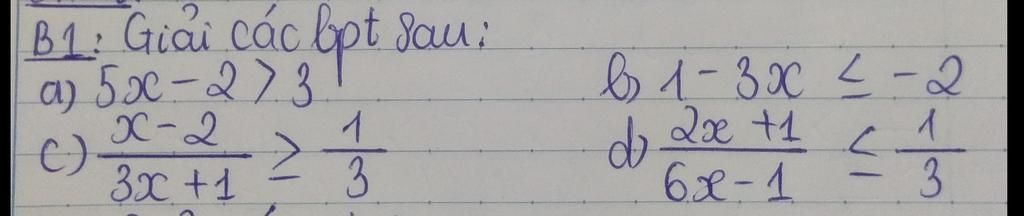 B1: Giải các bpt sau:
a) 5x - 2 > 3 b) 1 - 3x ≤ -2
c) (x - 2)/(3x + 1) ≥ 1/3 d) (2x + 1)/(6x - 1) ≤ 1/3